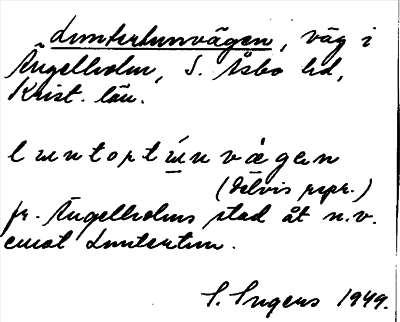 Luntertunvägen, väg i
Ängelholm, S. Åsbo hd,
Krist. län.
luntertúnvägen
(delvis repr.)
fr. Ängelholms stad åt n.v.
emot Luntertun.
S. Ingers 1949.